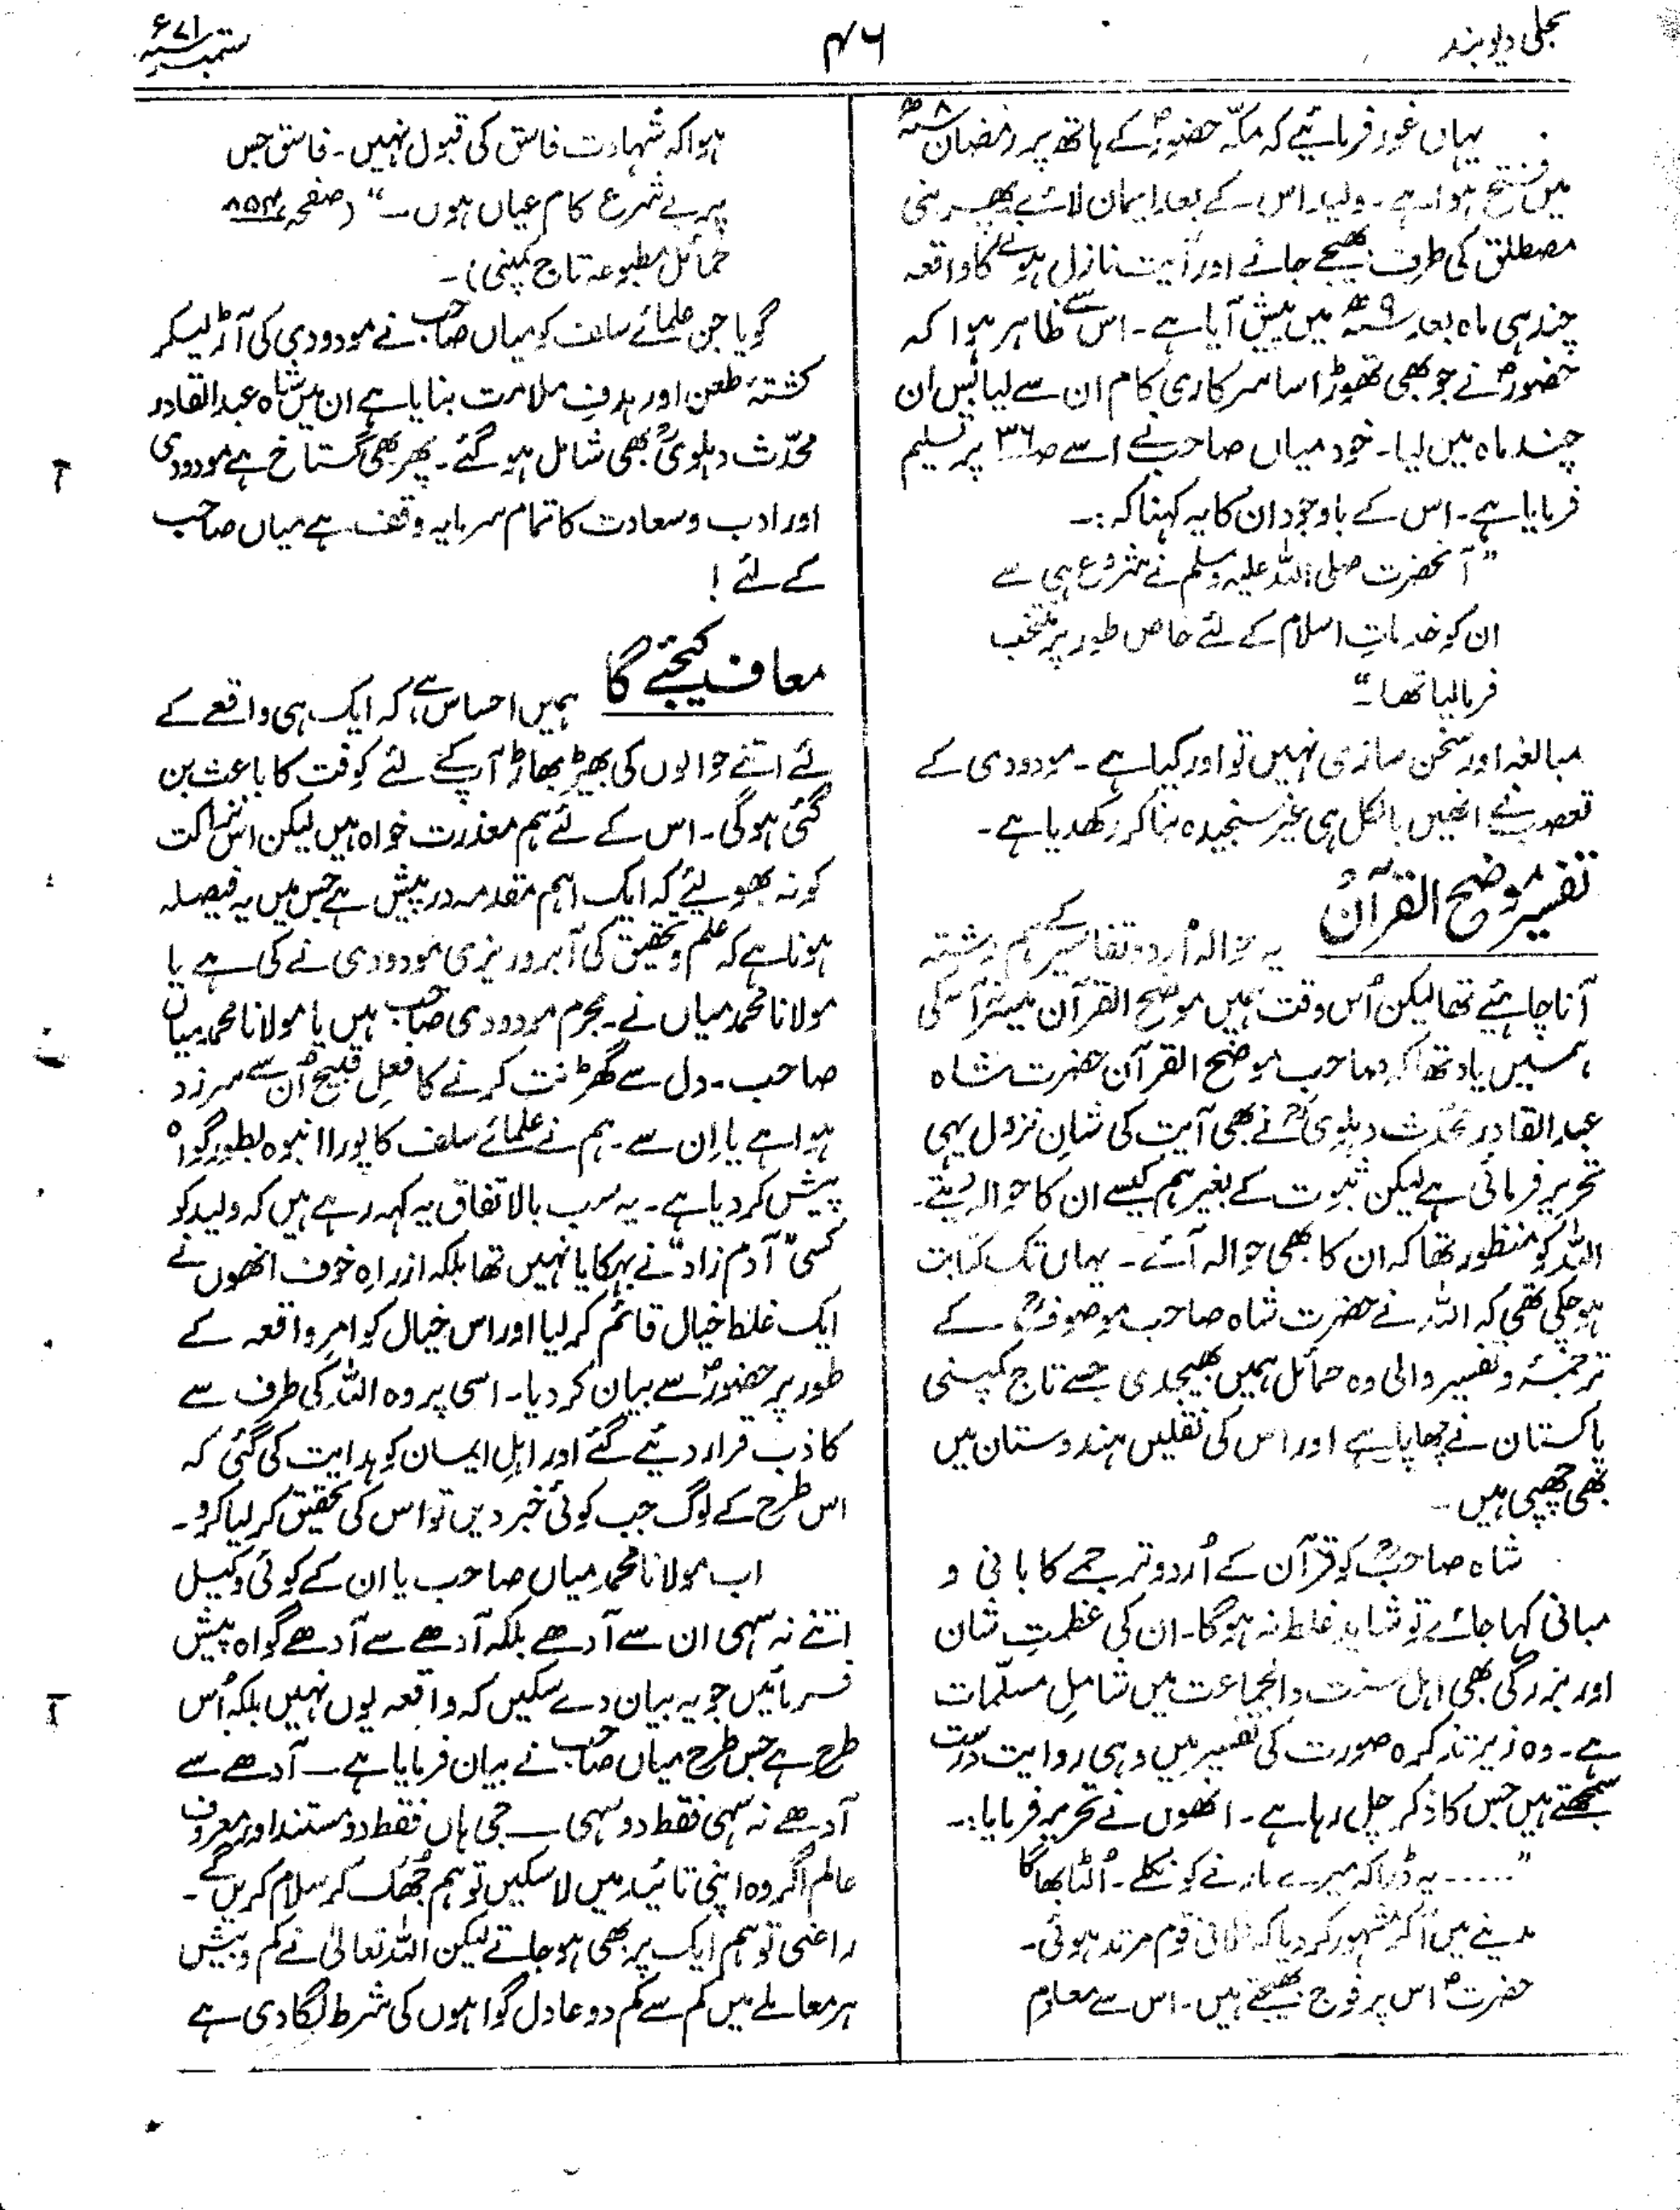 تجلی دیوبند
۴۶
ستمبر ۷۱ء
یہاں غور فرمائیے کہ مکہ حضورؐ کے ہاتھ پر رمضان ۸ھ
میں فتح ہوا ہے۔ ولید اس کے بعد ایمان لائے پھر بنی
مصطلق کی طرف بھیجے جانے اور آیت نازل ہونے کا واقعہ
چند ہی ماہ بعد ۹ھ میں پیش آیا ہے۔ اس سے ظاہر ہوا کہ
حضورؐ نے جو بھی تھوڑا سا سرکاری کام ان سے لیا بس ان
چند ماہ میں لیا۔ خود میاں صاحب نے اسے ص۳۶ پر تسلیم
فرمایا ہے۔ اس کے باوجود ان کا یہ کہنا کہ:۔
”آنحضرت صلی اللہ علیہ وسلم نے شروع ہی سے
ان کو خدماتِ اسلام کے لئے خاص طور پر منتخب
فرما لیا تھا۔“
مبالغہ اور سخن سازی نہیں تو اور کیا ہے۔ مودودی کے
تعصب نے انھیں بالکل ہی غیر سنجیدہ بنا کر رکھدیا ہے۔
تفسیر موضح القرآن
یہ حوالہ اُردو تفاسیر کے ہم رشتہ
آنا چاہئیے تھا لیکن اُس وقت ہمیں موضح القرآن میسر نہ آسکی
ہمیں یاد تھا کہ صاحب موضح القرآن حضرت شاہ
عبدالقادر محدث دہلویؒ نے بھی آیت کی شانِ نزول یہی
تحریر فرمائی ہے لیکن ثبوت کے بغیر ہم کیسے ان کا حوالہ دیتے۔
اللہ کو منظور تھا کہ ان کا بھی حوالہ آئے۔ یہاں تک کتابت
ہو چکی تھی کہ اللہ نے حضرت شاہ صاحب موصوفؒ کے
ترجمۂ و تفسیر والی وہ حمائل ہمیں بھیجدی جسے تاج کمپنی
پاکستان نے چھاپا ہے اور اس کی نقلیں ہندوستان میں
بھی چھپی ہیں۔
شاہ صاحبؒ کو قرآن کے اُردو ترجمے کا بانی و
مبانی کہا جائے تو شاید غلط نہ ہوگا۔ ان کی عظمتِ شان
اور بزرگی بھی اہل سنت والجماعت میں شاملِ مسلّمات
ہے۔ وہ زیر تذکرہ صورت کی تفسیر میں وہی روایت درست
سمجھتے ہیں جس کا ذکر چل رہا ہے۔ انھوں نے تحریر فرمایا:۔
”..... یہ ڈرا کہ میرے مارنے کو نکلے۔ اُلٹا بھاگا
مدینے میں آکر مشہور کر دیا کہ فلانی قوم مرتد ہوئی۔
حضرتؐ اس پر فوج بھیجتے ہیں۔ اس سے معلوم
ہوا کہ شہادت فاسق کی قبول نہیں۔ فاسق جس
پر بے شرع کام عیاں ہوں۔“ (صفحہ ۸۵۴
حمائل مطبوعہ تاج کمپنی)۔
گویا جن علمائے سلف کو میاں صاحب نے مودودی کی آڑ لیکر
کشتۂ طعن اور ہدفِ ملامت بنایا ہے ان میں شاہ عبدالقادر
محدّث دہلویؒ بھی شامل ہو گئے۔ پھر بھی گستاخ ہے مودودی
اور ادب و سعادت کا تمام سرمایہ وقف ہے میاں صاحب
کے لئے!
معاف کیجئے گا
ہمیں احساس ہے کہ ایک ہی واقعے کے
لئے اتنے حوالوں کی بھیڑ بھاڑ آپ کے لئے کوفت کا باعث بن
گئی ہوگی۔ اس کے لئے ہم معذرت خواہ ہیں لیکن اس نزاکت
کو نہ بھولئے کہ ایک اہم مقدمہ درپیش ہے جس میں یہ فیصلہ
ہونا ہے کہ علم و تحقیق کی آبرو ریزی مودودی نے کی ہے یا
مولانا محمد میاں نے۔ مجرم مودودی صاحب ہیں یا مولانا محمد میاں
صاحب۔ دل سے گھڑنت کرنے کا فعلِ قبیح اُن سے سرزد
ہوا ہے یا اِن سے۔ ہم نے علمائے سلف کا پورا انبوہ بطور گواہ
پیش کر دیا ہے۔ یہ سب بالاتفاق یہ کہہ رہے ہیں کہ ولید کو
کسی ”آدم زاد“ نے بہکایا نہیں تھا بلکہ ازراہِ خوف انھوں نے
ایک غلط خیال قائم کر لیا اور اس خیال کو امرِ واقعہ کے
طور پر حضورؐ سے بیان کر دیا۔ اسی پر وہ اللہ کی طرف سے
کاذب قرار دئیے گئے اور اہلِ ایمان کو ہدایت کی گئی کہ
اس طرح کے لوگ جب کوئی خبر دیں تو اس کی تحقیق کر لیا کرو۔
اب مولانا محمد میاں صاحب یا ان کے کوئی وکیل
اتنے نہ سہی ان سے آدھے بلکہ آدھے سے آدھے گواہ پیش
فرمائیں جو یہ بیان دے سکیں کہ واقعہ یوں نہیں بلکہ اُس
طرح ہے جس طرح میاں صاحب نے بیان فرمایا ہے۔ آدھے سے
آدھے نہ سہی فقط دو سہی — جی ہاں فقط دو مستند اور معروف
عالم اگر وہ اپنی تائید میں لا سکیں تو ہم جُھک کر سلام کریں گے۔
راضی تو ہم ایک پر بھی ہو جاتے لیکن اللہ تعالیٰ نے کم و بیش
ہر معاملے میں کم سے کم دو عادل گواہوں کی شرط لگا دی ہے